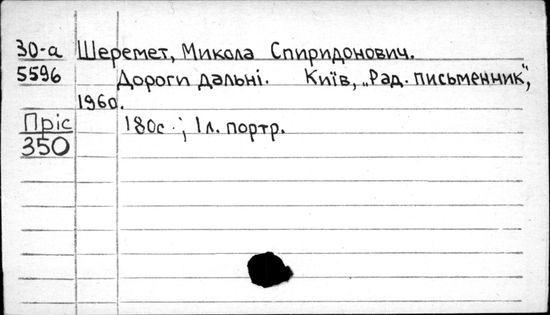 30-а Шеремет, Микола Спиридонович.
5596 Дороги дальні. Київ, „Рад. письменник",
1960.
Пріс 180с.; 1л. портр.
350